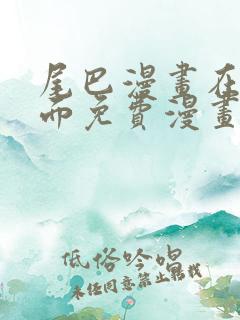 尾巴漫畫在
而免費漫畫
低俗吟唱
未经同意禁止转载